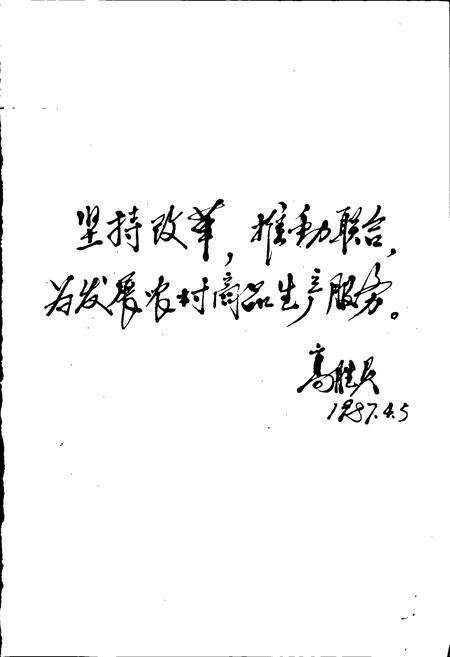 坚持改革,推动联合,
为发展农村商品生产服务。
高胜贝
1987.4.5